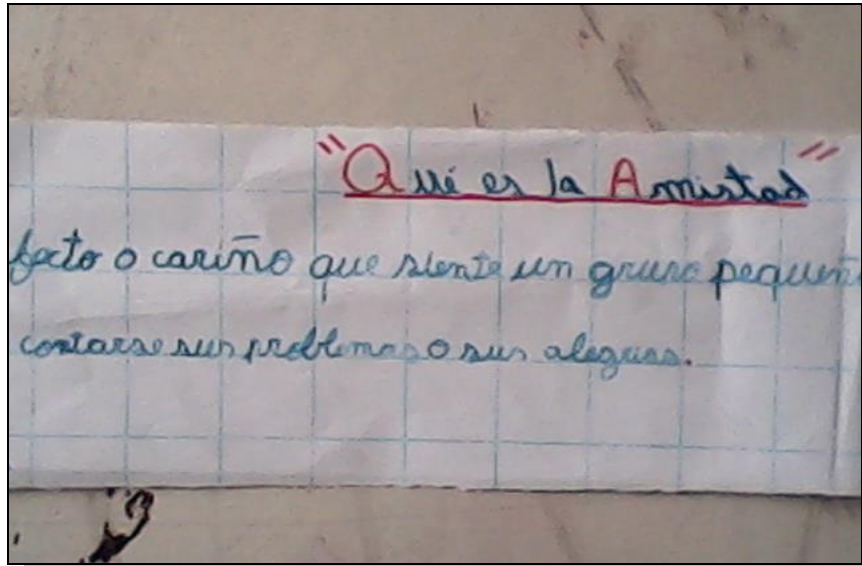 "Qué es la Amistad"
fecto o cariño que siente un grupo pequeñ
contarse sus problemas o sus alegrias.